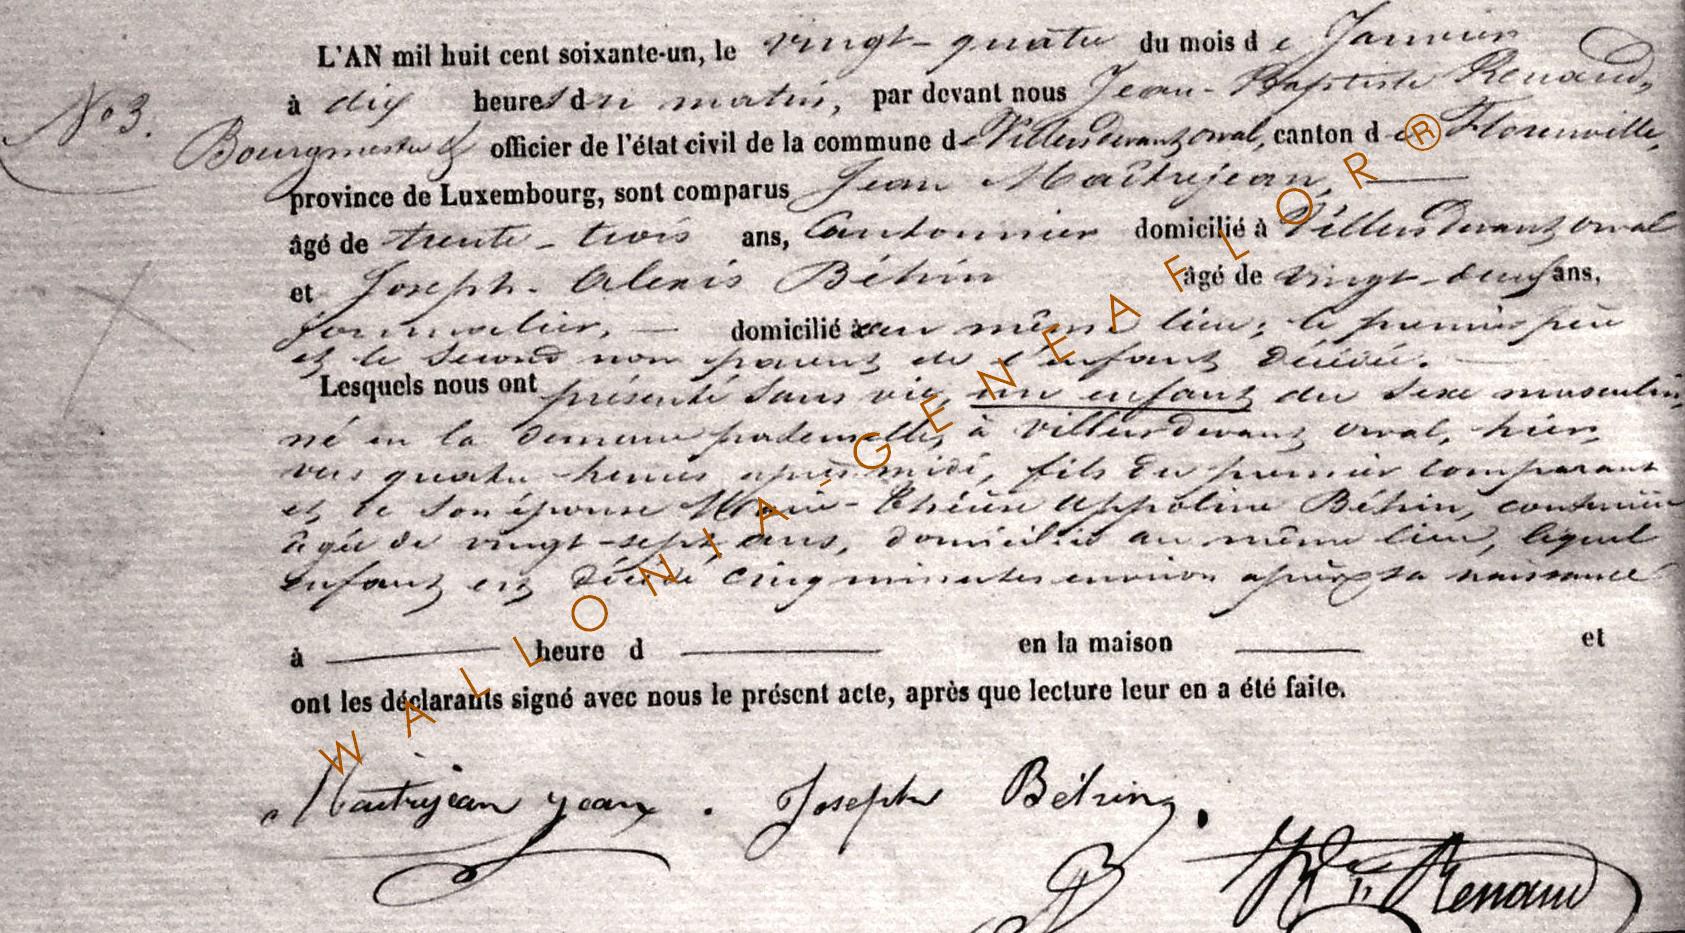 L'AN mil huit cent soixante-un, le vingt-quatre du mois de Janvier
à dix heures du matin, par devant nous Jean-Baptiste Renaud,
N° 3.
Bourgmestre & officier de l'état civil de la commune de Villersdevantorval, canton de Florenville,
province de Luxembourg, sont comparus Jean Maîtrejean,
âgé de trente-trois ans, Cantonnier domicilié à Villersdevantorval
et Joseph-Alexis Béhin âgé de vingt-deux ans,
journalier, domicilié au même lieu; le premier père
et le second non parent de l'enfant décédé.
Lesquels nous ont présenté sans vie, un enfant du sexe masculin,
né en la demeure paternelle, à Villersdevant orval, hier,
vers quatre heures après midi, fils du premier comparant
et de son épouse Marie-Thérèse Appoline Béhin, couturière
âgée de vingt-sept ans, domiciliée au même lieu, lequel
enfant est décédé cinq minutes environ après sa naissance
à heure d en la maison et
ont les déclarants signé avec nous le présent acte, après que lecture leur en a été faite.
Maitrejean jean . Joseph Béhin .
Renaud
WALLONIA-GENEAFLOR®